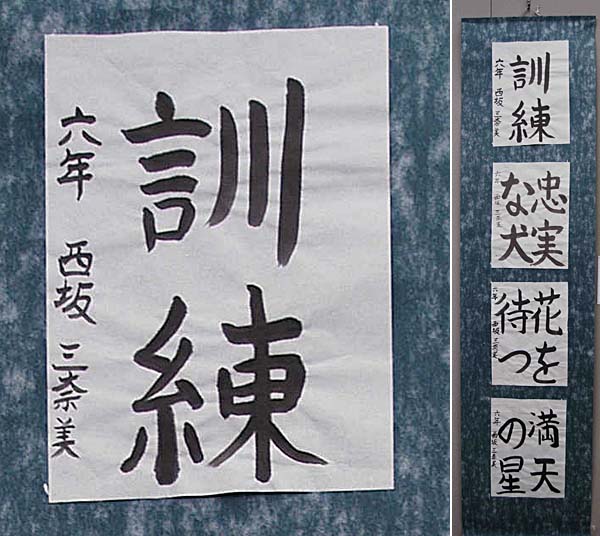 訓練
六年 西坂 三奈美
訓練
六年 西坂 三奈美
忠実
な犬
六年 西坂 三奈美
花を
待つ
六年 西坂 三奈美
満天
の星
六年 西坂 三奈美